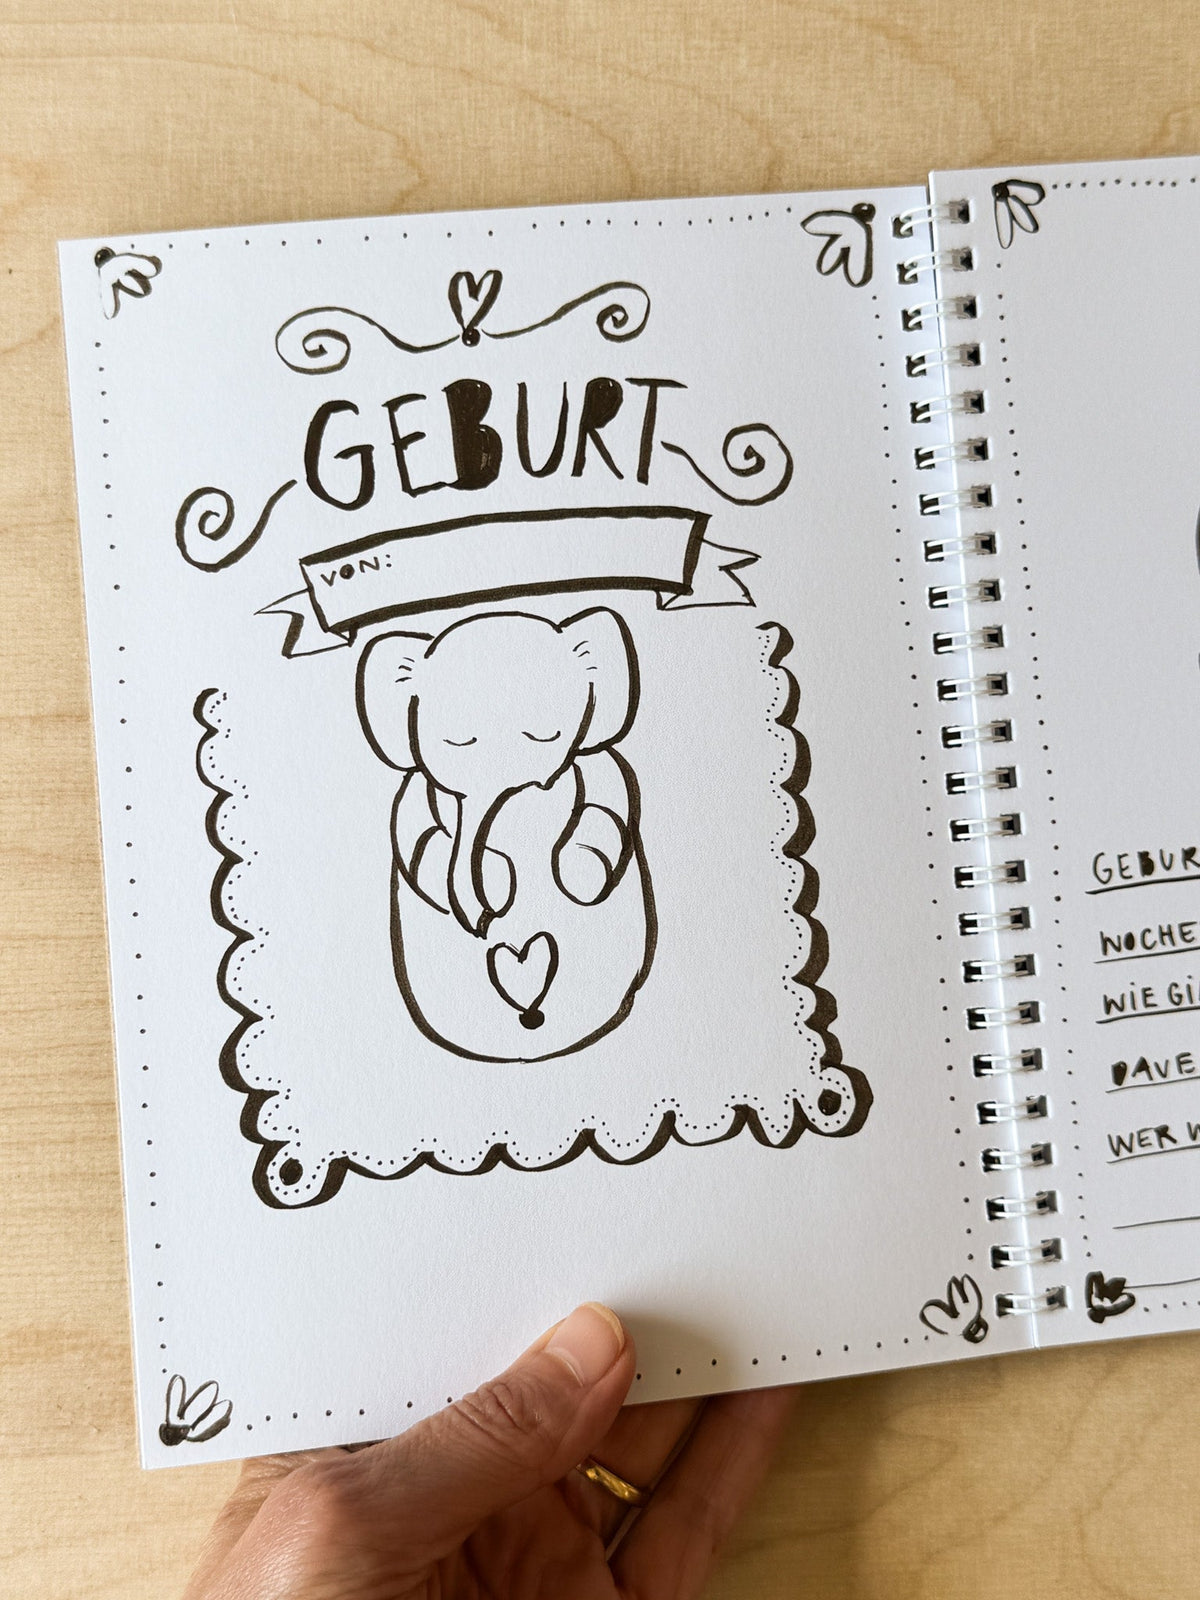 GEBURT
VON:
GEBUR
WOCHE
WIE GI
DAVE
WER W